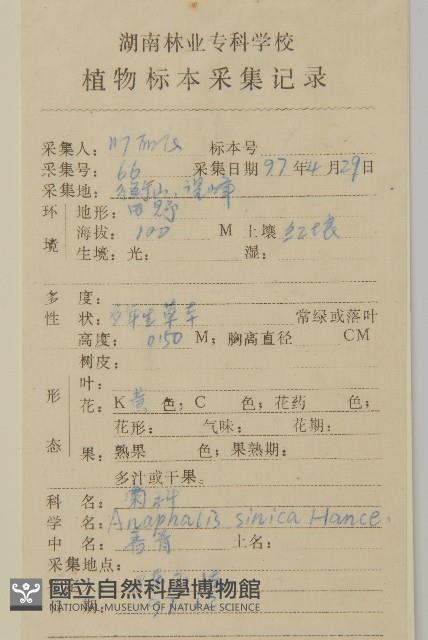 湖南林业专科学校
植物标本采集记录
采集人: 标本号
采集号: 66 采集日期 97 年 4 月 29 日
采集地:
环境
地形: 田野
海拔: 100 M 土壤 红壤
生境: 光: 湿:
多度:
性状: 多年生草本 常绿或落叶
高度: 0.50 M; 胸高直径 CM
树皮:
形态
叶:
花: K 黄 色; C 色; 花药 色;
花形: 气味: 花期:
果: 熟果 色; 果熟期:
多汁或干果。
科名: 菊科
学名: Anaphalis sinica Hance.
中名: 土名:
采集地点:
國立自然科學博物館
NATIONAL MUSEUM OF NATURAL SCIENCE